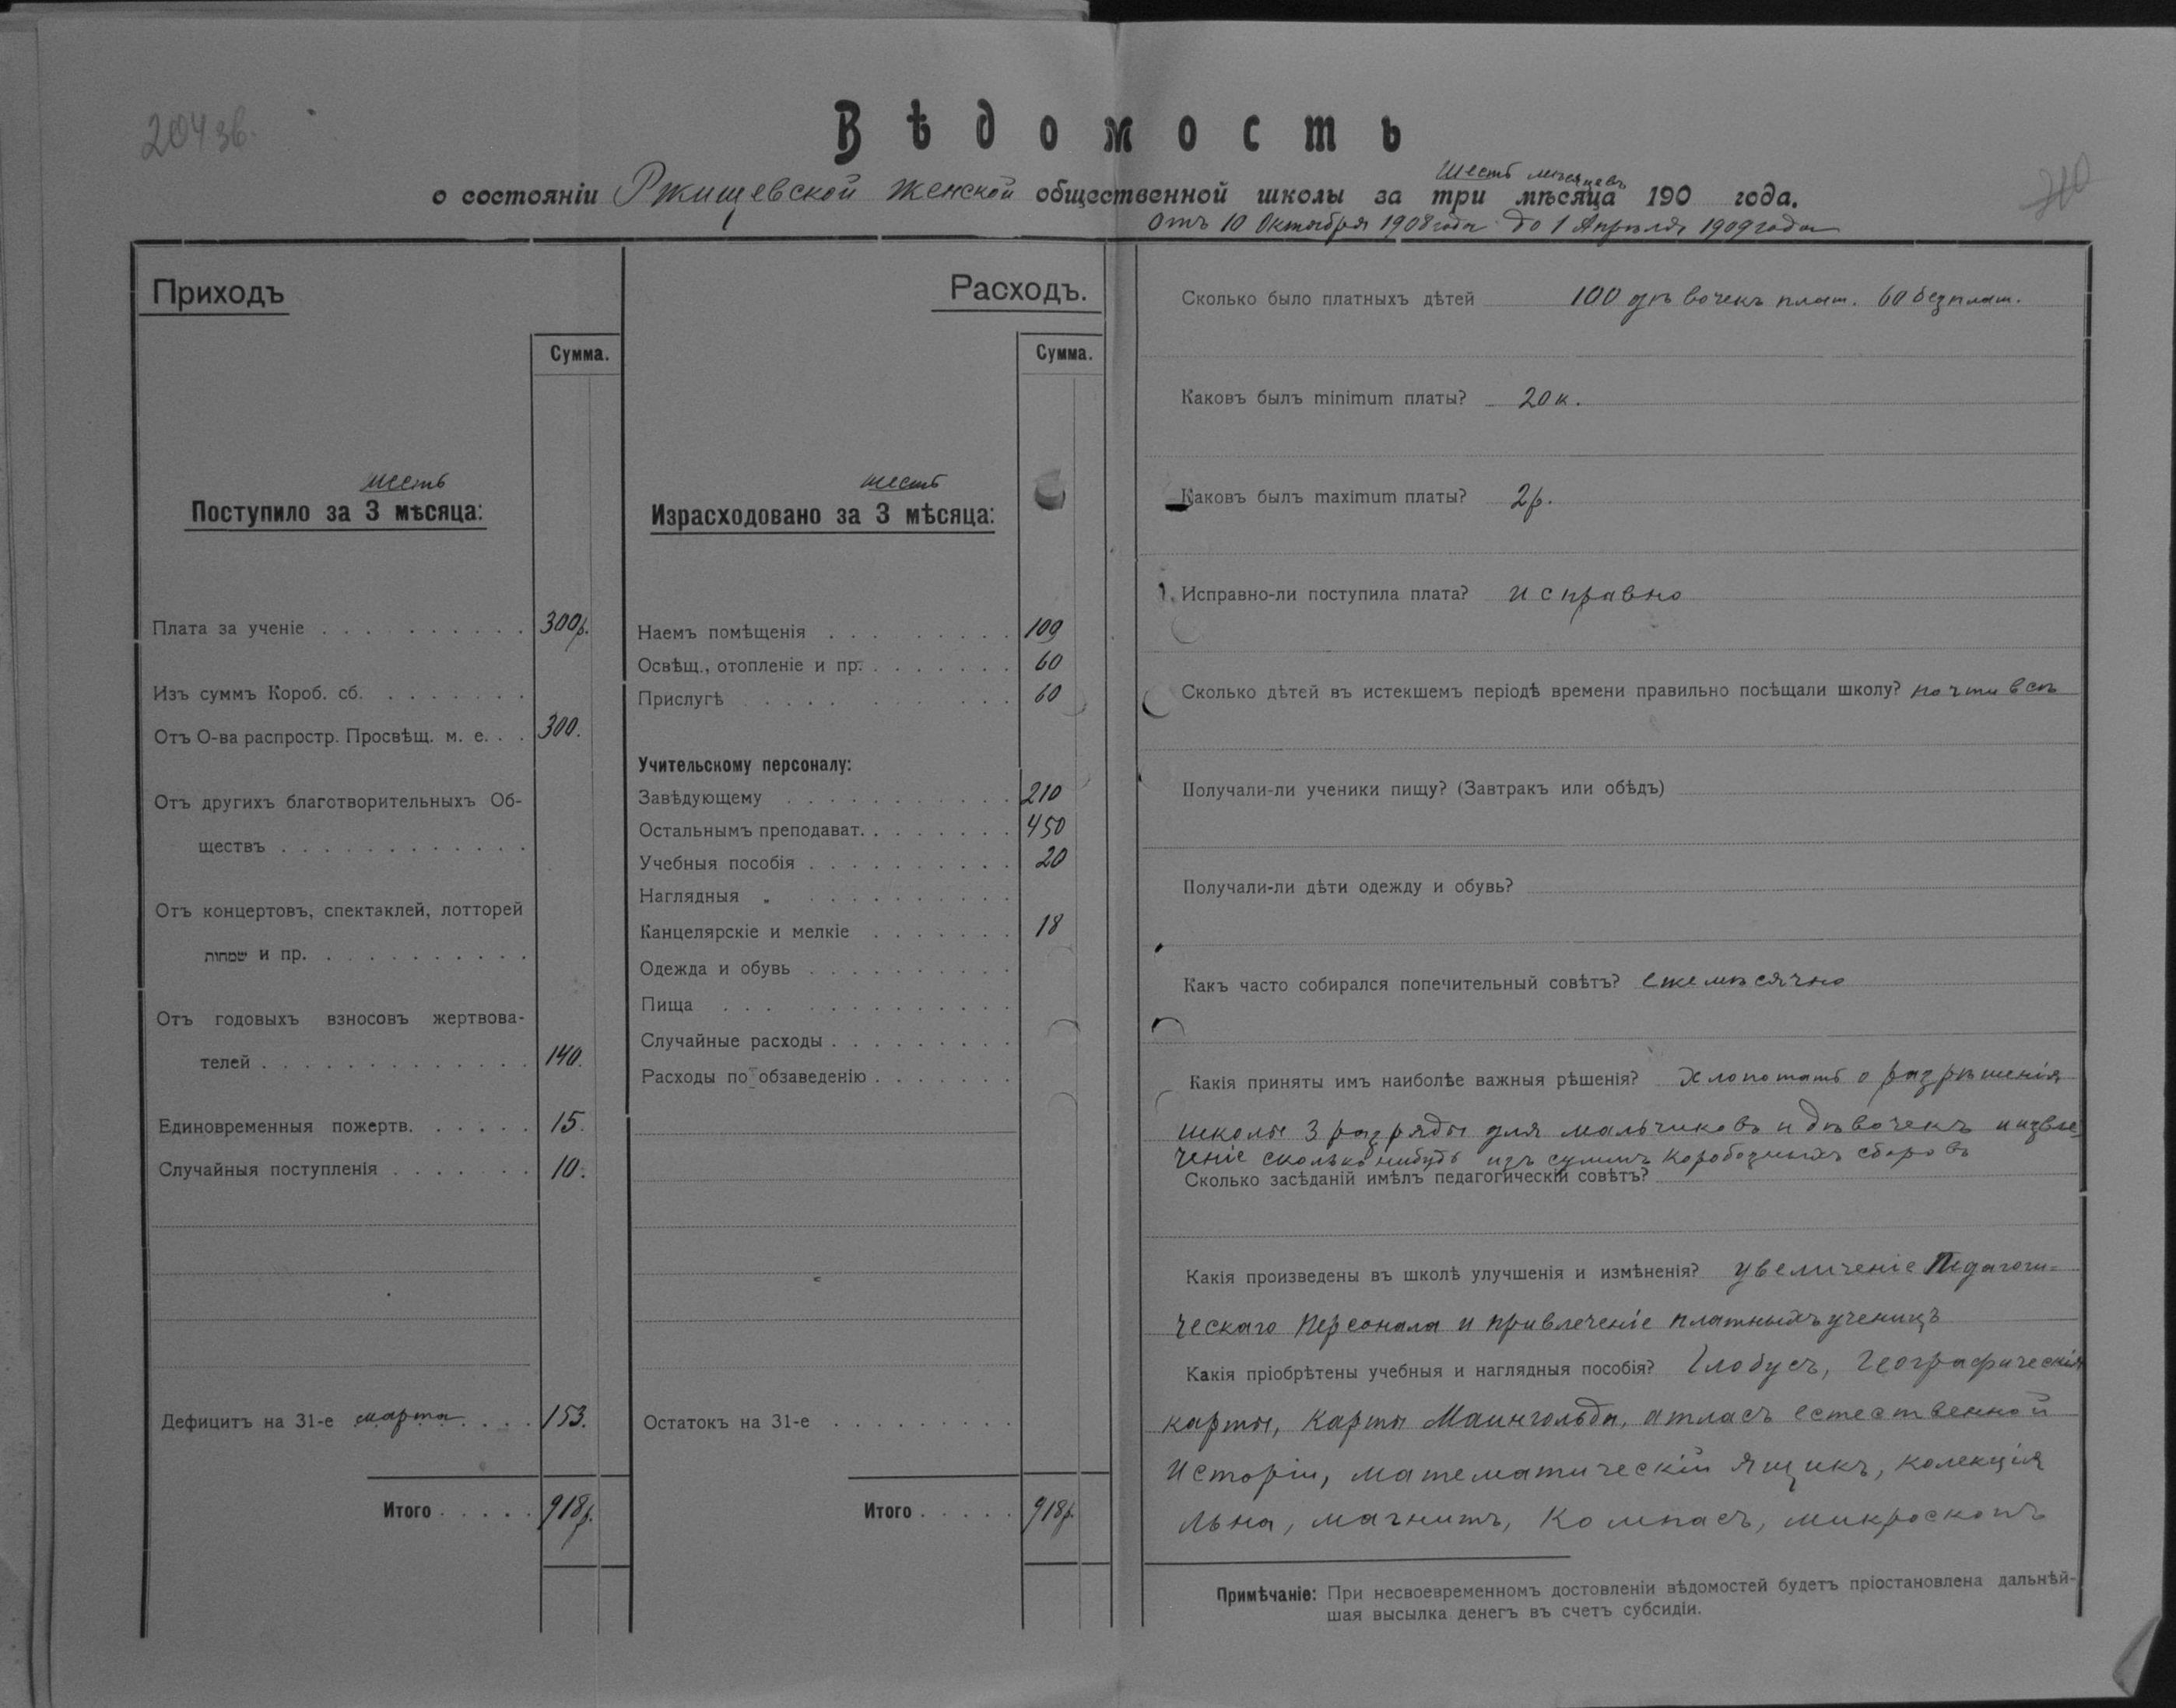 204 зв.
Вѣдомость
шесть мѣсяцевъ
о состояніи Ржищевской женской общественной школы за три мѣсяца 190 года.
отъ 10 Октября 1908 года до 1 Апрѣля 1909 года
Приходъ
Сумма.
шесть
Поступило за 3 мѣсяца:
Плата за ученіе . . . . . . . . . . 300р.
Изъ суммъ Короб. сб. . . . . . . .
Отъ О-ва распростр. Просвѣщ. м. е. . . 300.
Отъ другихъ благотворительныхъ Об-
ществъ . . . . . . . . . . . . .
Отъ концертовъ, спектаклей, лотторей
שמחות и пр. . . . . . . . . . .
Отъ годовыхъ взносовъ жертвова-
телей . . . . . . . . . . . . . 140.
Единовременныя пожертв. . . . . . 15.
Случайныя поступленія . . . . . . 10.
Дефицитъ на 31-е марта . . . . 153.
Итого . . . . . 918р.
Расходъ.
Сумма.
шесть
Израсходовано за 3 мѣсяца:
Наемъ помѣщенія . . . . . . . . 109
Освѣщ., отопленіе и пр. . . . . . . . 60
Прислугѣ . . . . . . . . . . 60
Учительскому персоналу:
Завѣдующему . . . . . . . . . . . 210
Остальнымъ преподават. . . . . . . . 450
Учебныя пособія . . . . . . . . . . 20
Наглядныя „ . . . . . . . . . .
Канцелярскіе и мелкіе . . . . . . . 18
Одежда и обувь . . . . . . . . . .
Пища . . . . . . . . . . . . .
Случайные расходы . . . . . . . . .
Расходы по обзаведенію . . . . . . .
Остатокъ на 31-е . . . . . . . . .
Итого . . . . . 918р.
Сколько было платныхъ дѣтей 100 дѣвочекъ плат. 60 безплат.
Каковъ былъ minimum платы? 20 к.
Каковъ былъ maximum платы? 2р.
Исправно-ли поступила плата? исправно
Сколько дѣтей въ истекшемъ періодѣ времени правильно посѣщали школу? почти всѣ
Получали-ли ученики пищу? (Завтракъ или обѣдъ)
Получали-ли дѣти одежду и обувь?
Какъ часто собирался попечительный совѣтъ? ежемѣсячно
Какія приняты имъ наиболѣе важныя рѣшенія? Хлопотать о разрѣшенія
школы 3 разряды для мальчиковъ и дѣвочекъ и извле
ченіе сколько нибудь изъ суммъ коробочныхъ сборовъ
Сколько засѣданій имѣлъ педагогическій совѣтъ?
Какія произведены въ школѣ улучшенія и измѣненія? увеличеніе Педагоги=
ческаго Персонала и привлеченіе платныхъ ученицъ
Какія пріобрѣтены учебныя и наглядныя пособія? Глобусъ, Географическія
карты, Карты Маингольда, атласъ естественной
Исторіи, математическій ящикъ, колекція
льна, магнитъ, Компасъ, микроскопъ
Примѣчаніе: При несвоевременномъ достовленіи вѣдомостей будетъ пріостановлена дальнѣй-
шая высылка денегъ въ счетъ субсидіи.